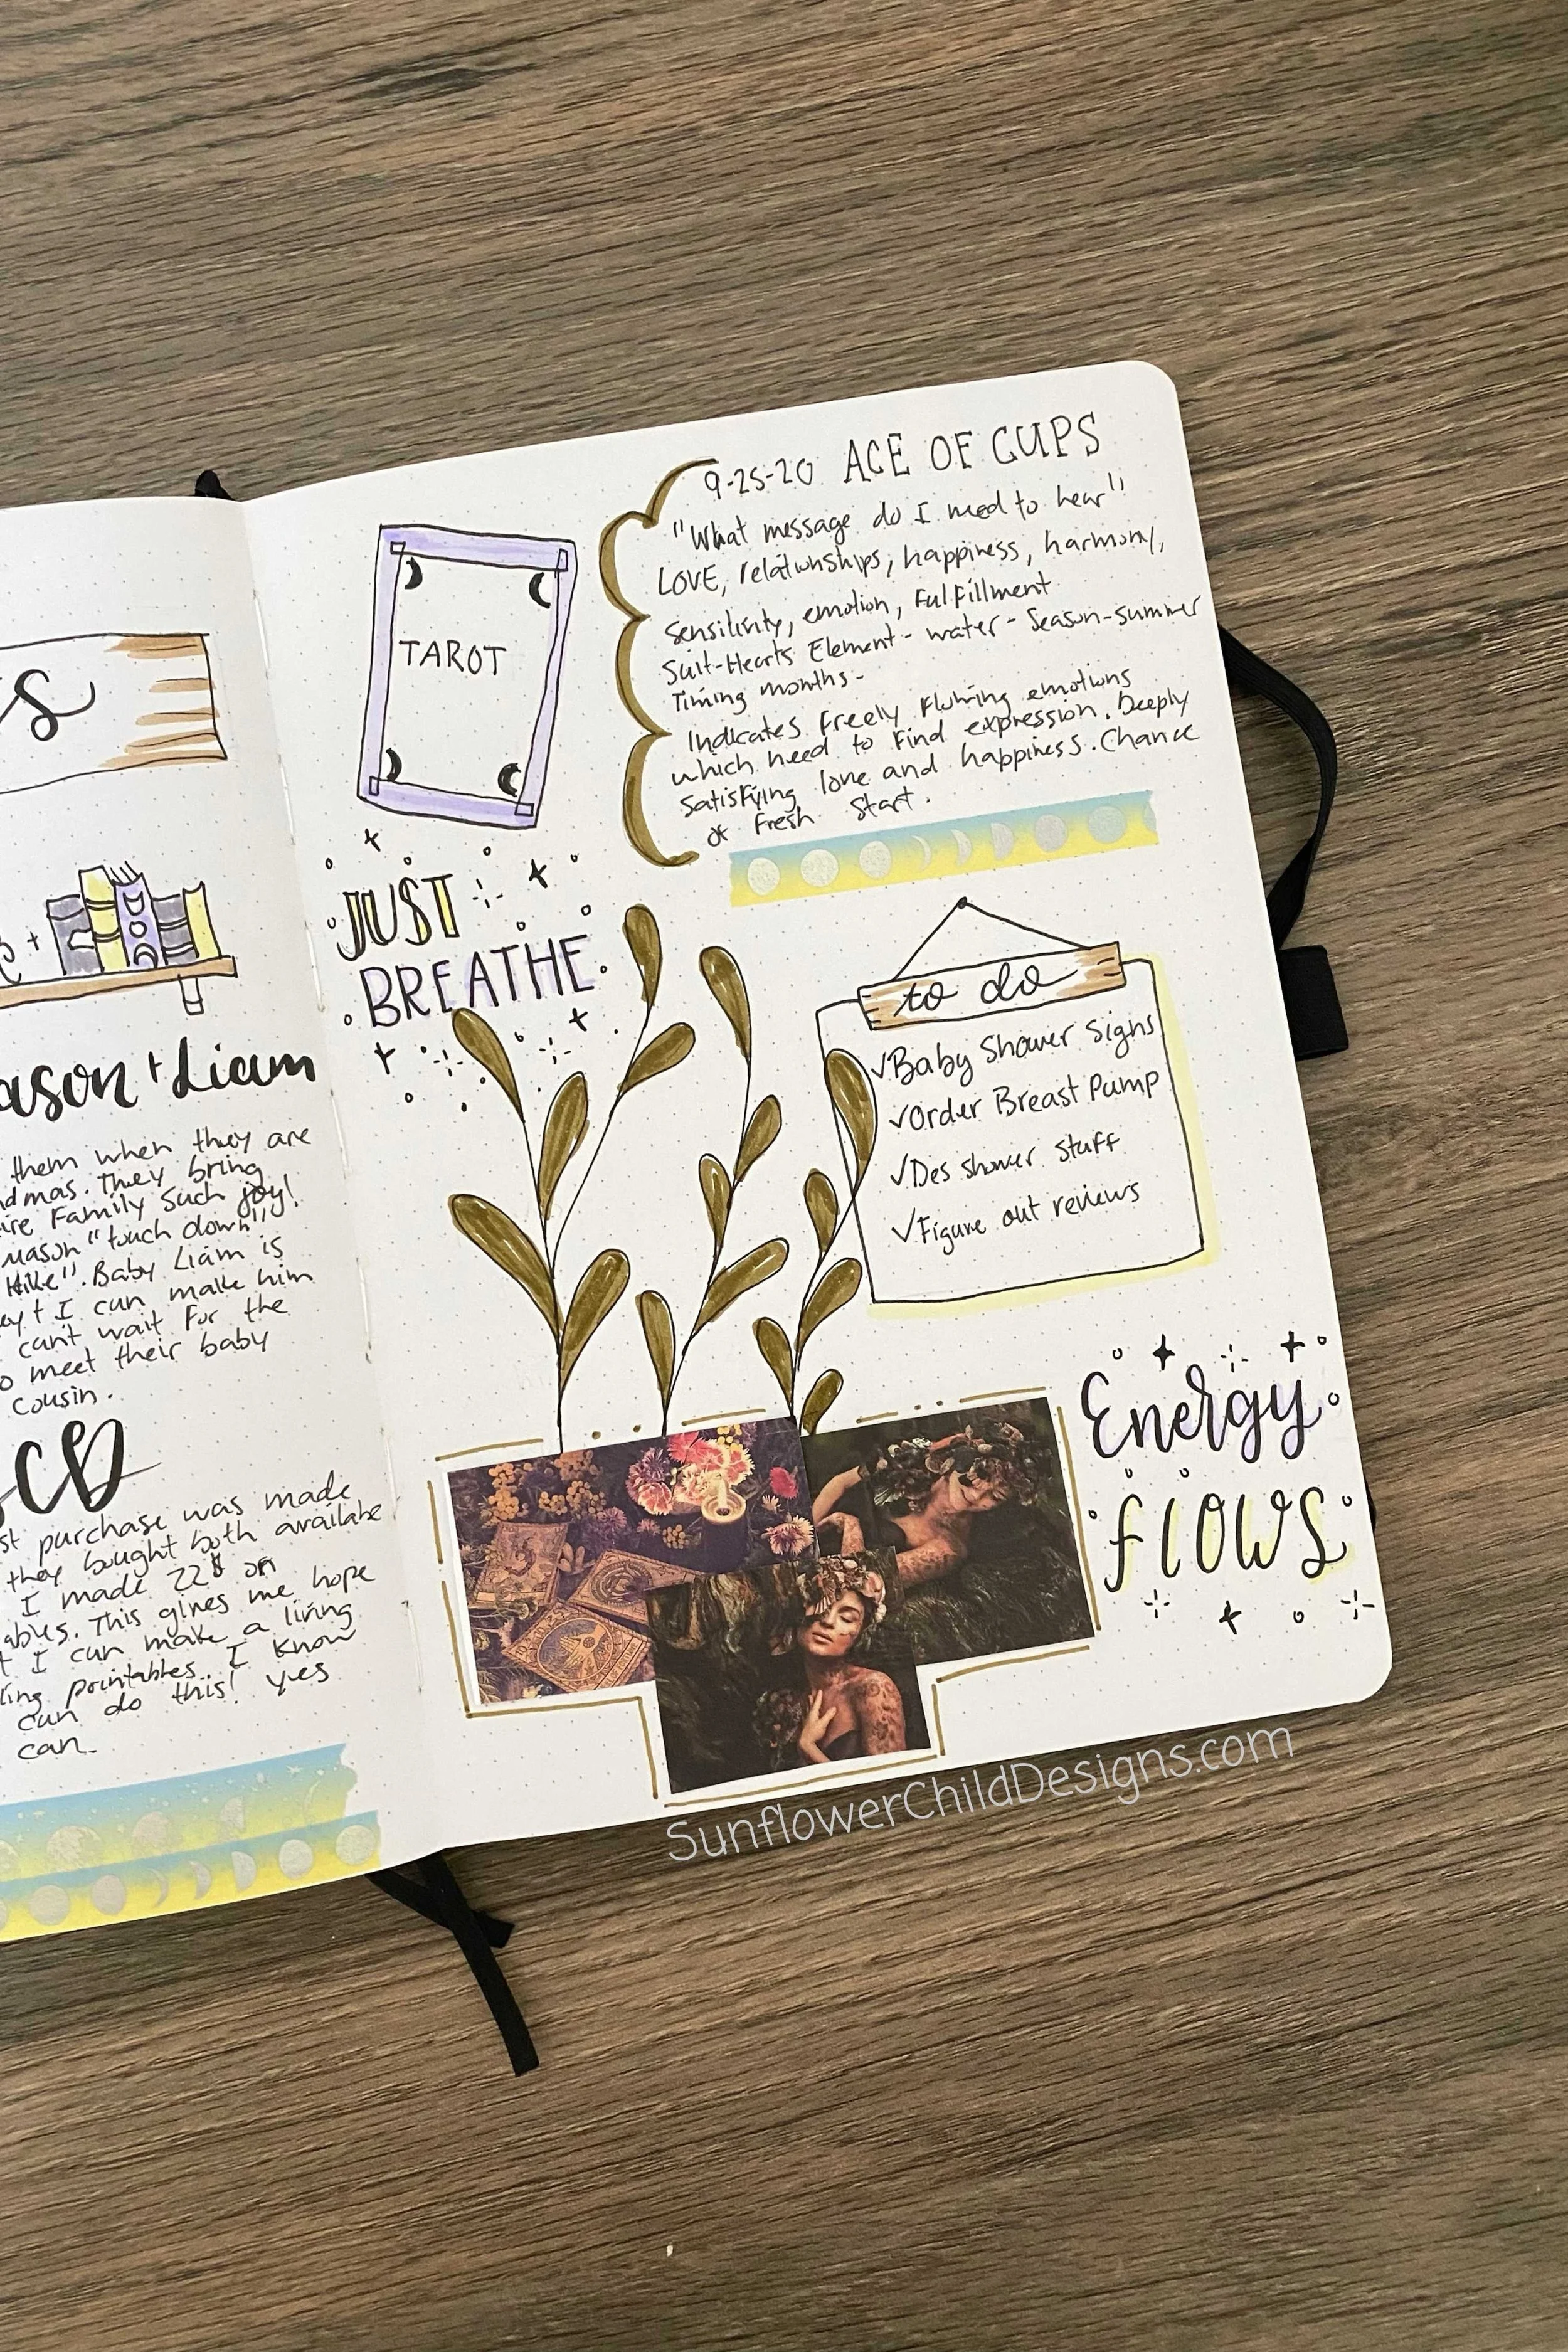 s
ason + Liam
them when they are
ndmas. They bring
ire Family such joy!
mason "touch down"!
Hike". Baby Liam is
ey + I can make him
can't wait For the
o meet their baby
cousin.
CD
st purchase was made
they bought both availabe
I made 22$ on
ables. This gives me hope
t I can make a living
ling printables. I know
can do this! yes
can.
TAROT
JUST
BREATHE
9-25-20 ACE OF CUPS
"What message do I need to hear"
LOVE, relationships, happiness, harmony,
Sensitivity, emotion, Fulfillment
Suit-Hearts Element - water - Season-summer
Timing months-
Indicates Freely Flowing emotions
which need to Find expression. Deeply
Satisfying love and happiness. Chance
of Fresh Start.
to do
✓Baby Shower Signs
✓Order Breast Pump
✓Des shower stuff
✓Figure out reviews
Energy
flows
SunflowerChildDesigns.com